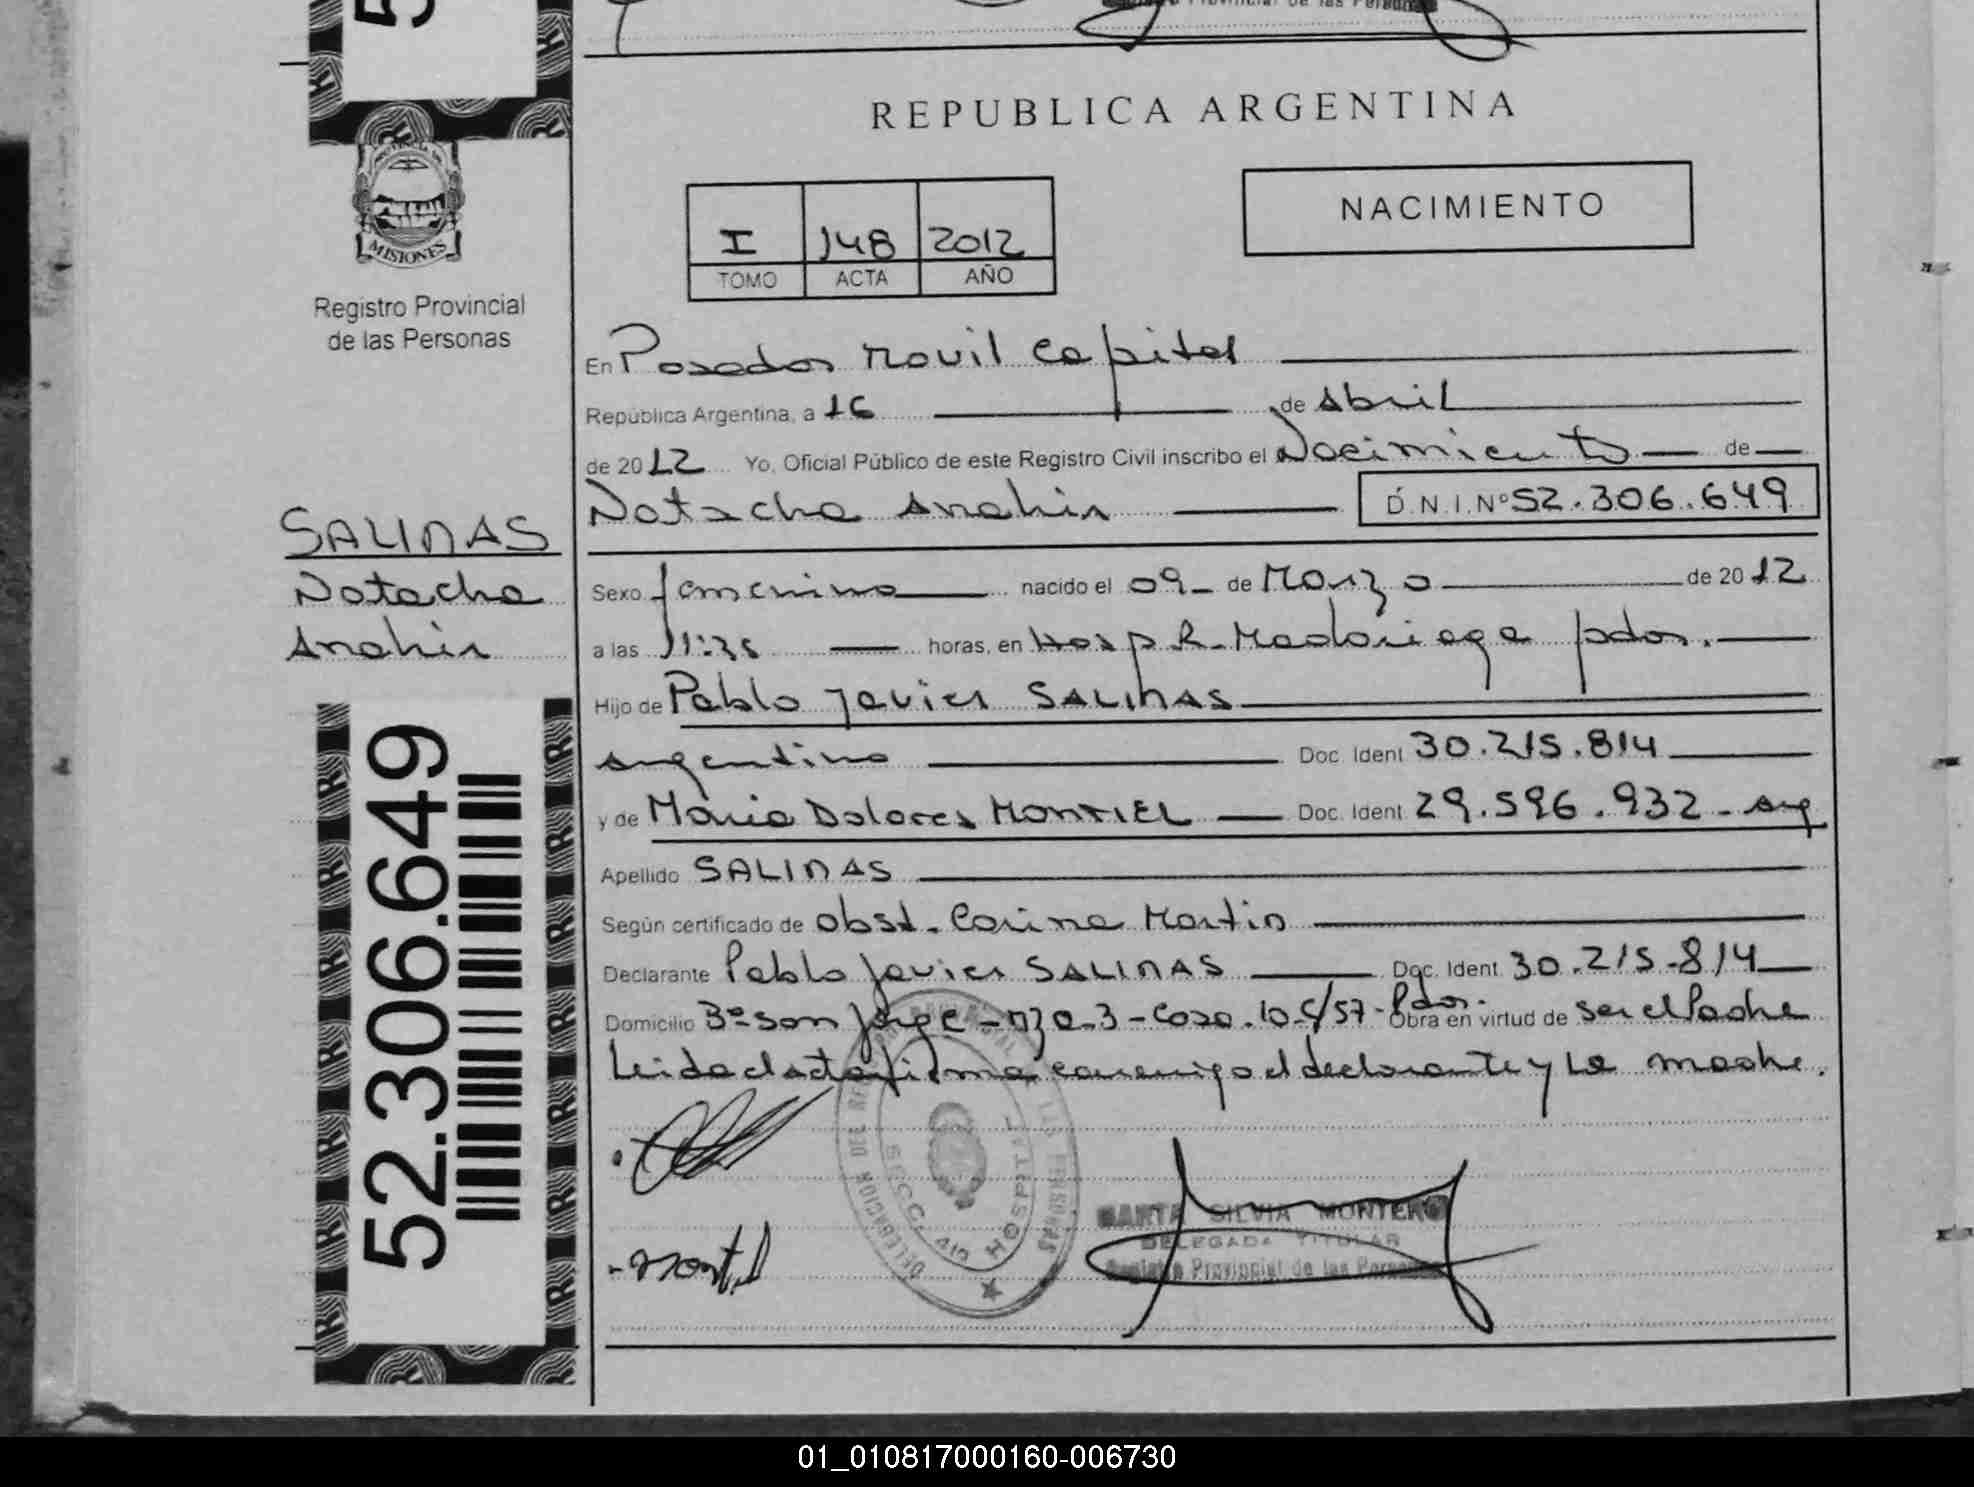 REPUBLICA ARGENTINA
NACIMIENTO
I 148 2012
TOMO ACTA AÑO
MISIONES
Registro Provincial
de las Personas
En Posadas Movil Capital
República Argentina, a 16 de Abril
de 2012 Yo, Oficial Público de este Registro Civil inscribo el Nacimiento de
Natacha Anahin D.N.I.Nº 52.306.649
SALINAS
Natacha
Anahin
Sexo femenino nacido el 09 de Marzo de 2012
a las horas, en Hosp R. Madariaga pdas.
Hijo de Pablo Javier SALINAS
argentino Doc. Ident 30.215.814
y de Maria Dolores MONTIEL Doc. Ident 29.596.932 - arg
Apellido SALINAS
Según certificado de obst. Carina Martin
Declarante Pablo Javier SALINAS Doc. Ident. 30.215.814
Domicilio Bº San Jorge - Mza. 3 - Casa. 10 - Pdas. Obra en virtud de ser el Padre
Leida el acta firma conmigo el declarante y la madre.
52.306.649
DELEGACION DEL
SECC. HOSPITAL
SILVIA MONTERO
DELEGADA TITULAR
Registro Provincial de las Personas
01_010817000160-006730